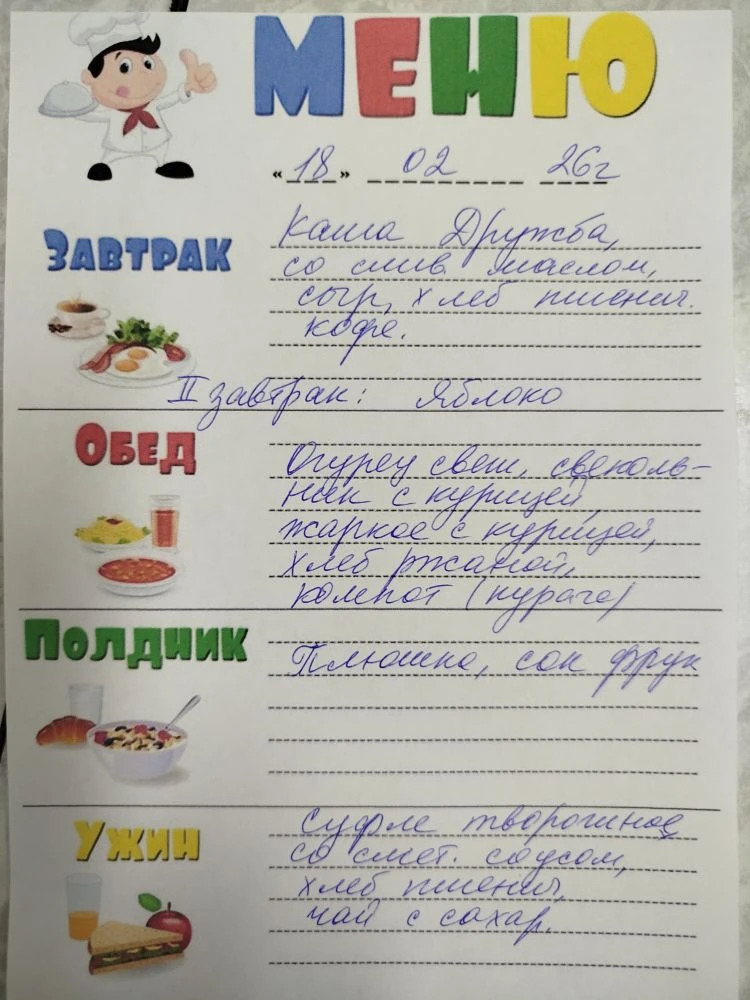 МЕНЮ
«18» 02 26г
ЗАВТРАК
Каша Дружба,
со слив маслом,
сыр, хлеб пшенич.
кофе.
II завтрак: Яблоко
ОБЕД
Огурец свеж, свеколь-
ник с курицей,
жаркое с курицей,
хлеб ржаной,
компот (курага)
ПОЛДНИК
Плюшка, сок фрук
УЖИН
Суфле творожное
со смет. соусом,
хлеб пшенич,
чай с сахар.